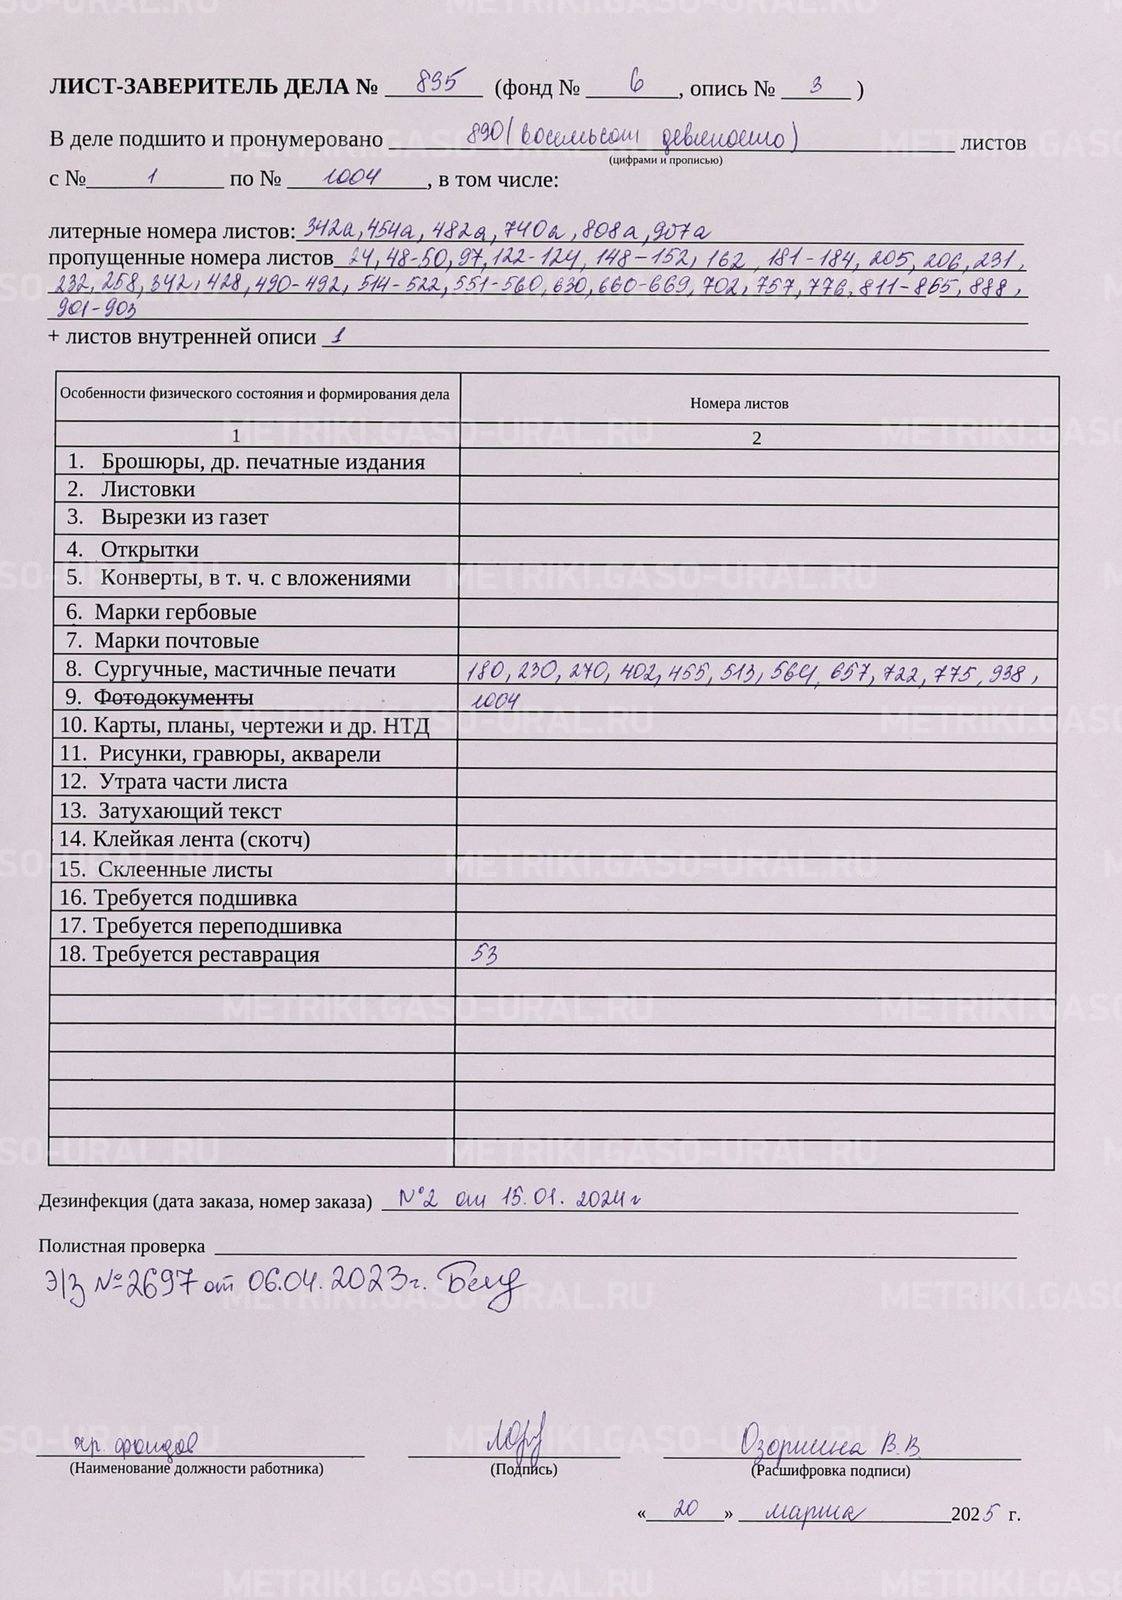 ЛИСТ-ЗАВЕРИТЕЛЬ ДЕЛА № 895 (фонд № 6, опись № 3 )
В деле подшито и пронумеровано 890 (восемьсот девяносто) листов
(цифрами и прописью)
с № 1 по № 1004, в том числе:
литерные номера листов: 342а, 454а, 482а, 740а, 808а, 907а
пропущенные номера листов 24, 48-50, 97, 122-124, 148-152, 162, 181-184, 205, 206, 231,
232, 258, 342, 428, 490-492, 514-522, 551-560, 630, 660-669, 702, 757, 776, 811-865, 888,
901-903
+ листов внутренней описи 1
Особенности физического состояния и формирования дела Номера листов
1 2
1. Брошюры, др. печатные издания
2. Листовки
3. Вырезки из газет
4. Открытки
5. Конверты, в т. ч. с вложениями
6. Марки гербовые
7. Марки почтовые
8. Сургучные, мастичные печати 180, 230, 270, 402, 455, 513, 564, 657, 722, 775, 938,
9. Фотодокументы 1004
10. Карты, планы, чертежи и др. НТД
11. Рисунки, гравюры, акварели
12. Утрата части листа
13. Затухающий текст
14. Клейкая лента (скотч)
15. Склеенные листы
16. Требуется подшивка
17. Требуется переподшивка
18. Требуется реставрация 53
Дезинфекция (дата заказа, номер заказа) №2 от 15.01.2024 г
Полистная проверка
Э/з №2697 от 06.04.2023г.
хр. фондов Озорнина В.В.
(Наименование должности работника) (Подпись) (Расшифровка подписи)
« 20 » марта 2025 г.
METRIKI.GASO-URAL.RU